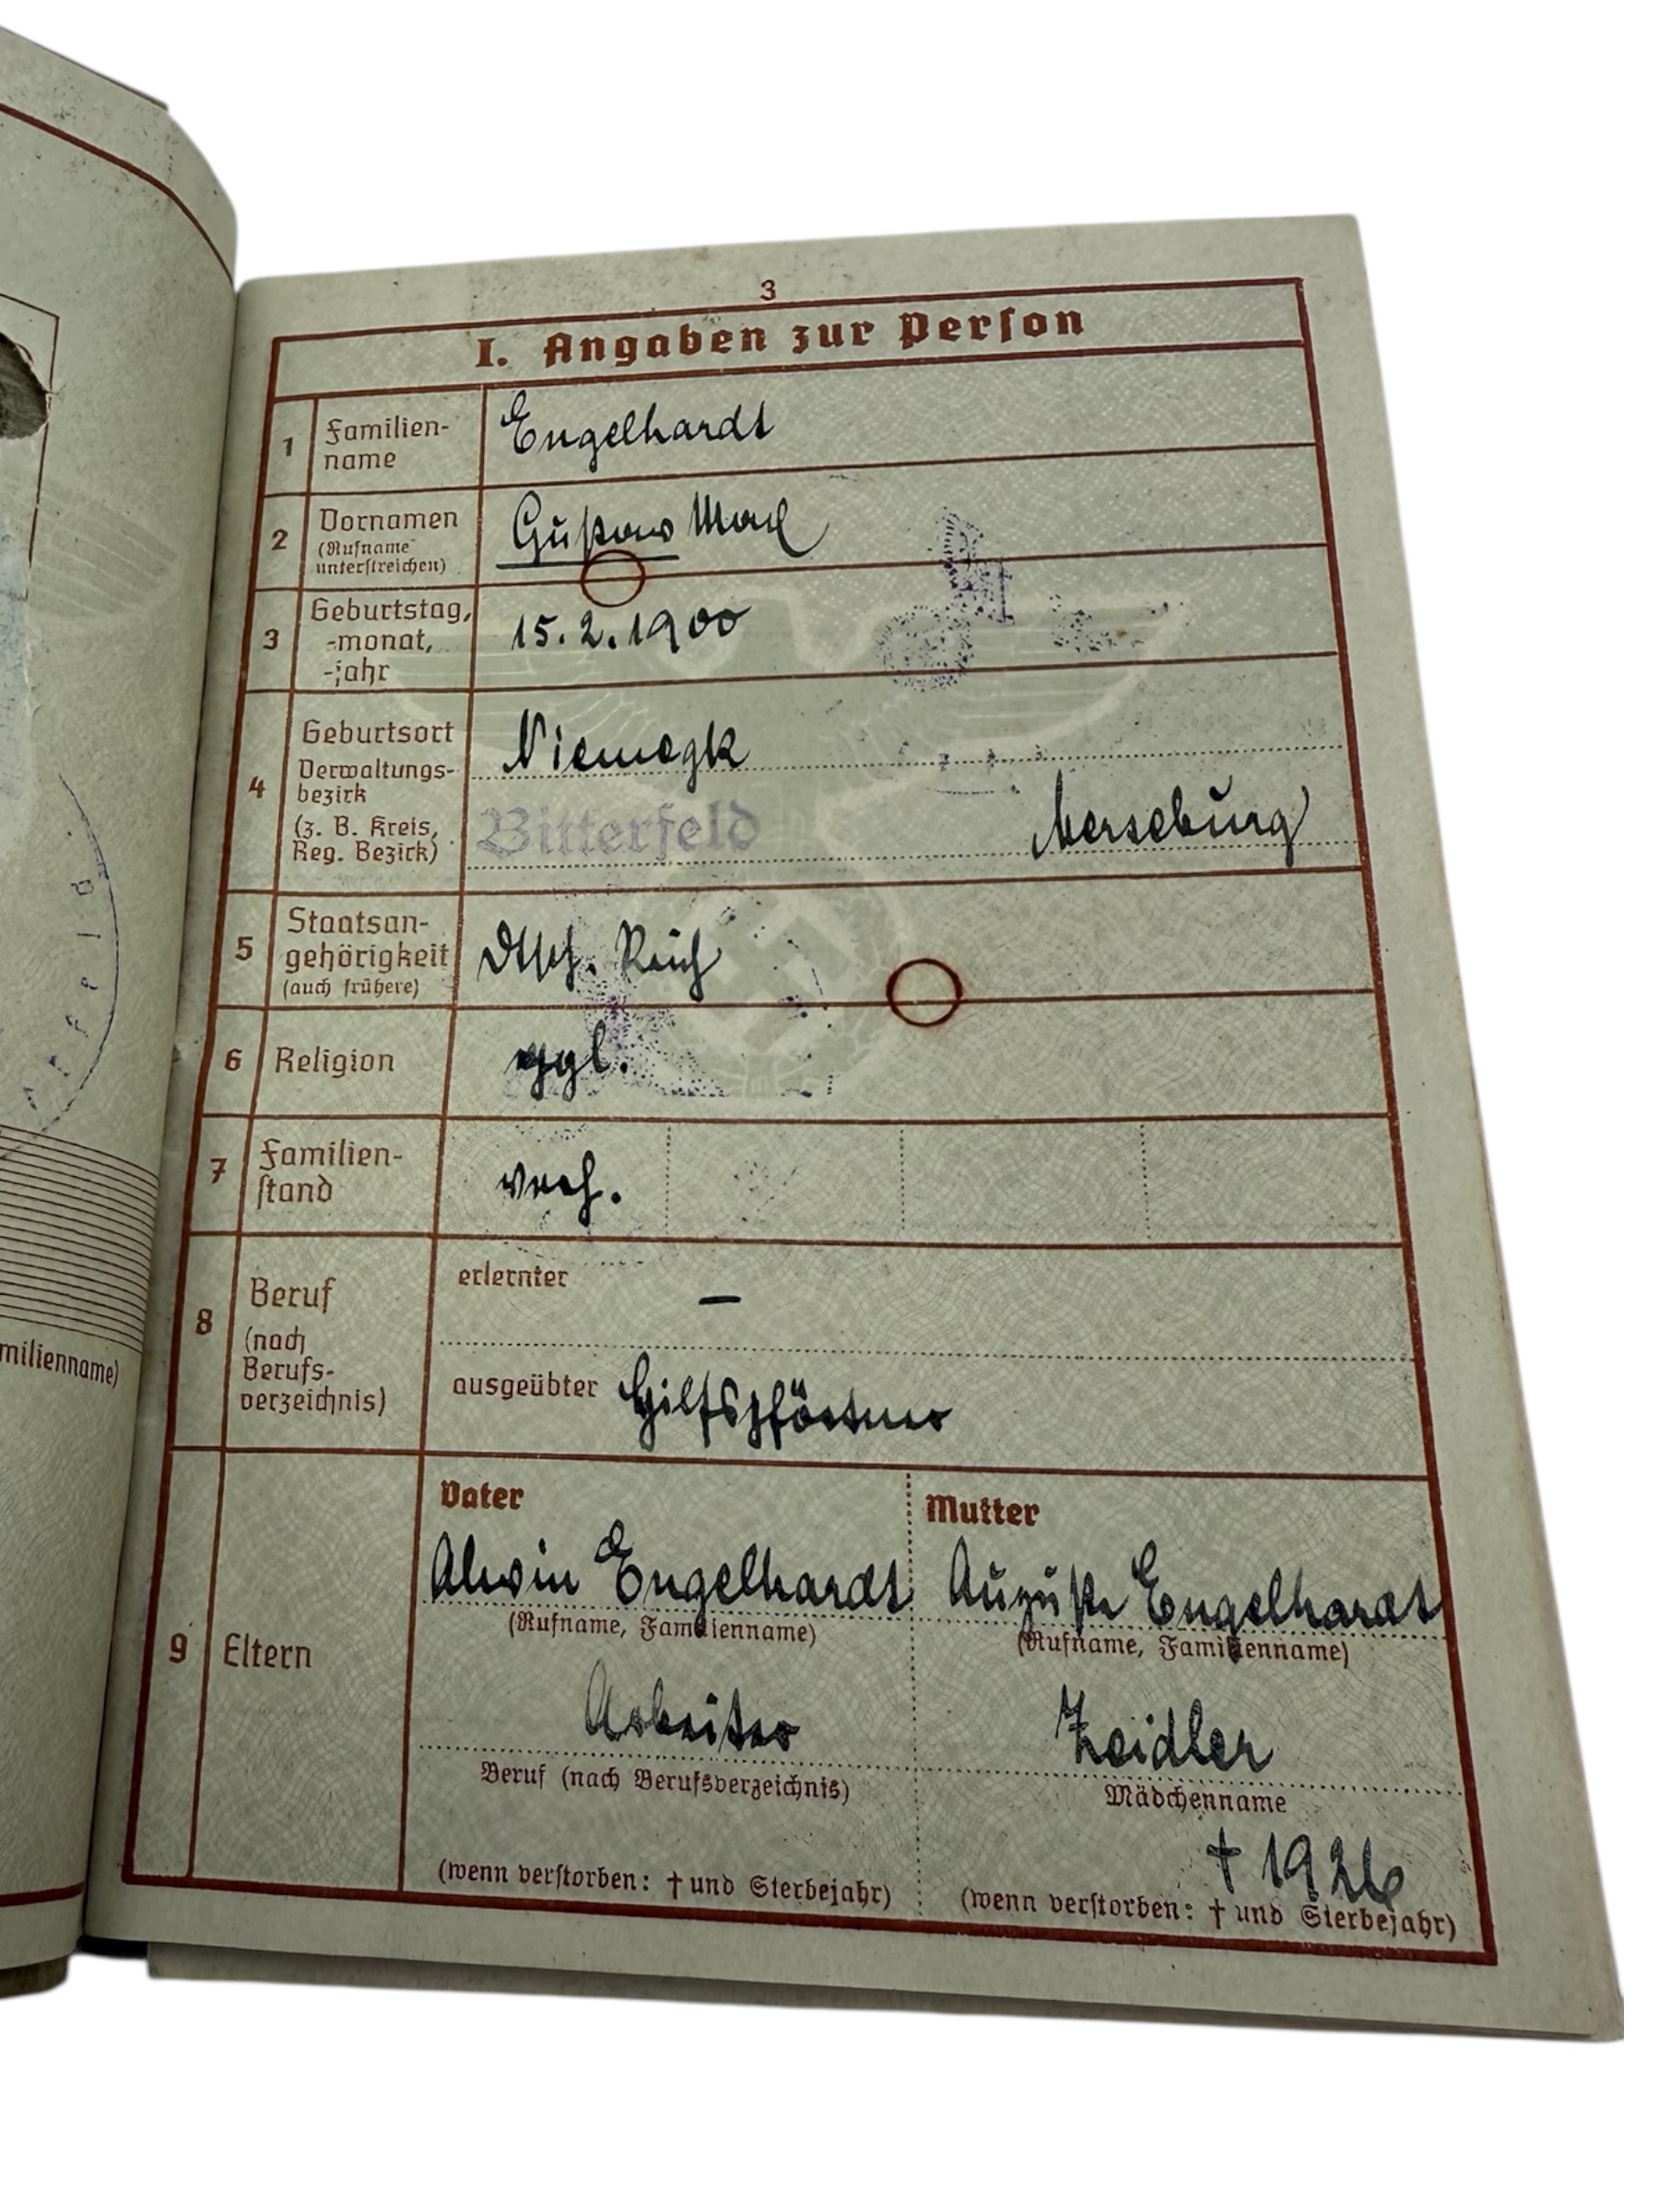 3
I. Angaben zur Person
1 Familien-
name
Engelhardt
2 Vornamen
(Rufname
unterstreichen)
Gustav
3 Geburtstag,
-monat,
-jahr
15.2.1900
4 Geburtsort
Niemegk
Verwaltungs-
bezirk
(z. B. Kreis,
Reg. Bezirk)
Bitterfeld Merseburg
5 Staatsan-
gehörigkeit
(auch frühere)
Dtsch. Reich
6 Religion
ggl.
7 Familien-
stand
verh.
8 Beruf
(nach
Berufs-
verzeichnis)
erlernter
–
ausgeübter Hilfspförtner
9 Eltern
Vater
Alwin Engelhardt
(Rufname, Familienname)
Arbeiter
Beruf (nach Berufsverzeichnis)
(wenn verstorben: † und Sterbejahr)
Mutter
Auguste Engelhardt
(Rufname, Familienname)
Zeidler
Mädchenname
† 1926
(wenn verstorben: † und Sterbejahr)
milienname)
rfeld